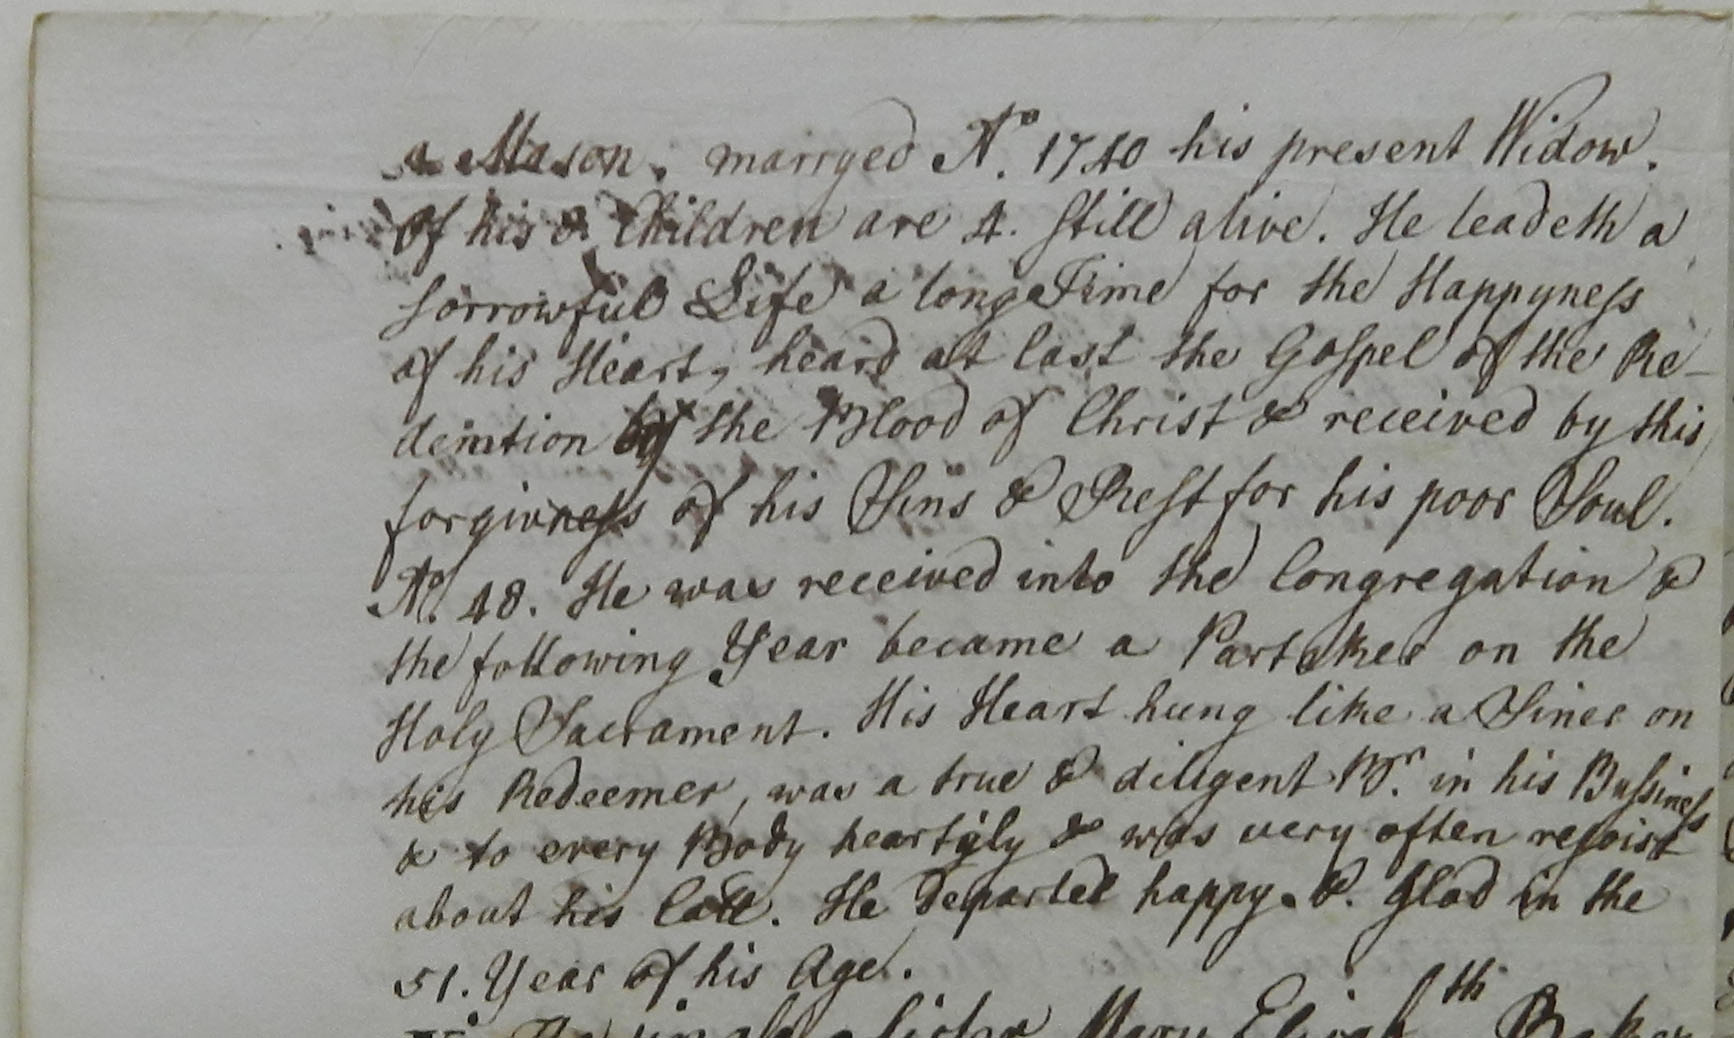 a Mason. marryed Aº. 1740 his present Widow.
Of his 8. Children are 4. still alive. He leadeth a
sorrowful Life a long Time for the Happyness
of his Heart, heard at last the Gospel of the Re-
demtion by the Blood of Christ & received by this
forgivness of his Sins & Rest for his poor Soul.
Aº. 48. He was received into the Congregation &
the following Year became a Partaker on the
Holy Sacrament. His Heart hung like a Siner on
his Redeemer, was a true & diligent Br. in his Bussiness
& to every Body heartyly & was very often rejoist
about his Call. He departed happy &. Glad in the
51. Year of his Age.
Sister Mary Elizabth Baker